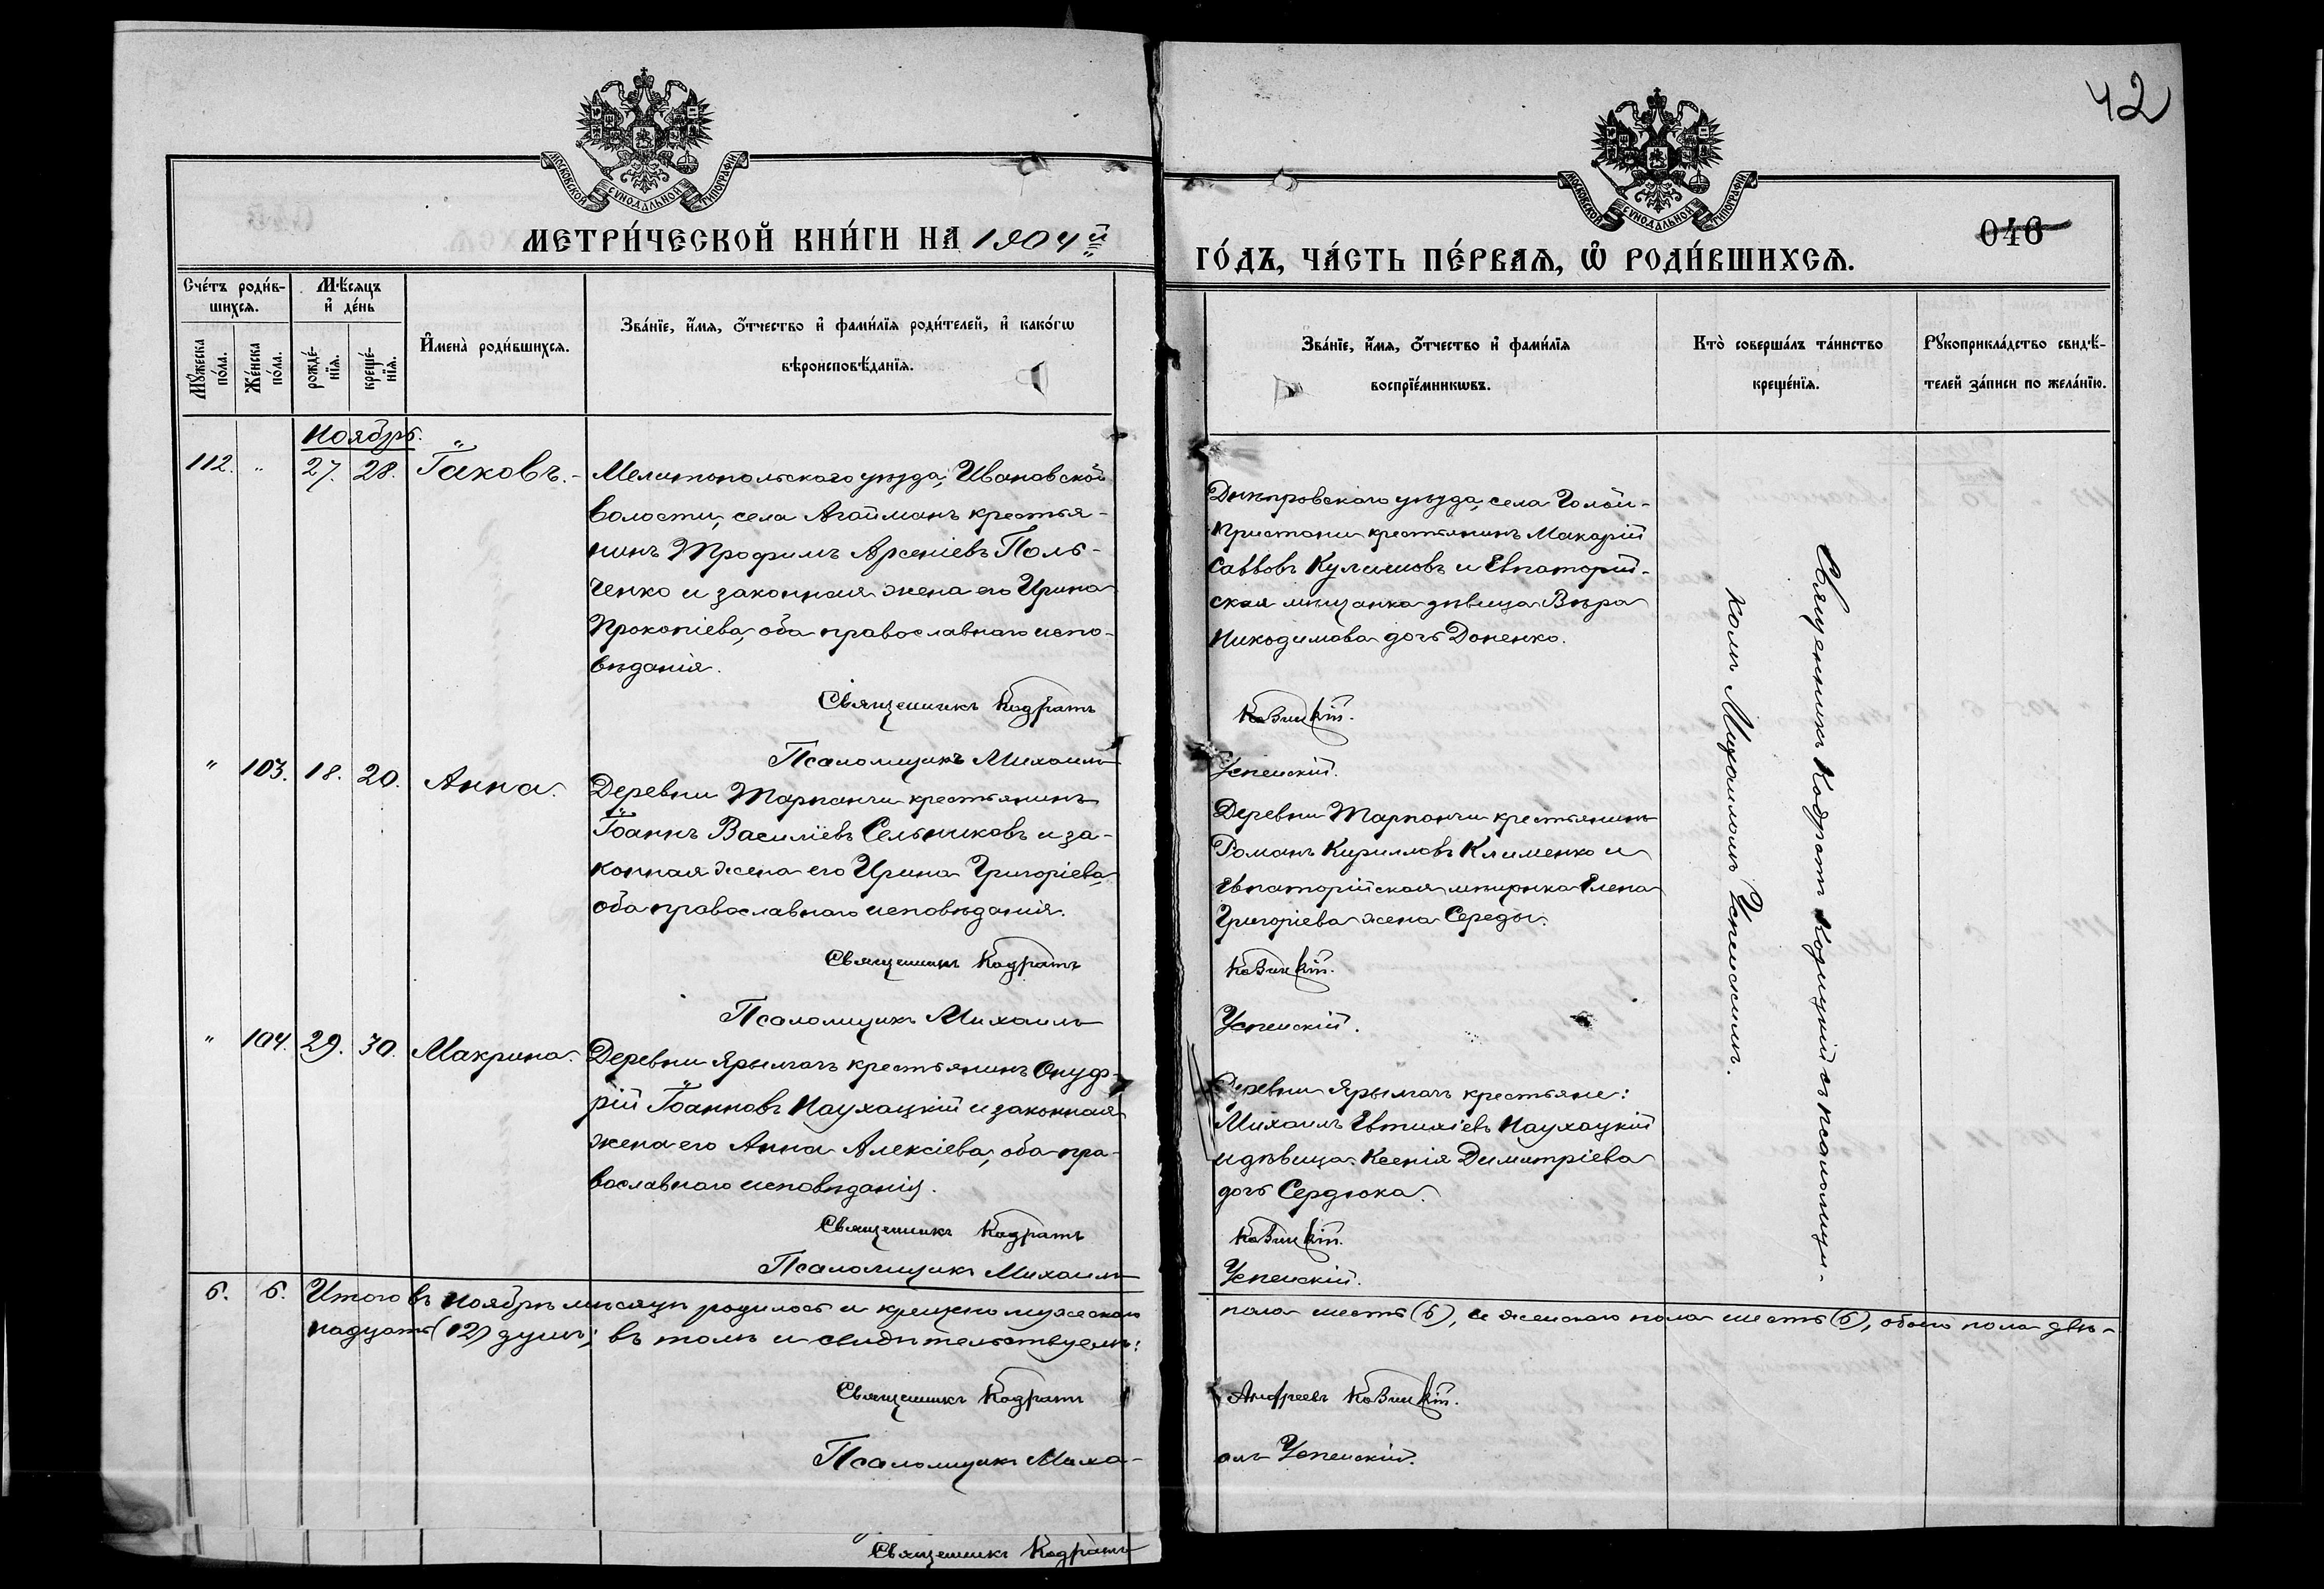 42
МОСКОВСКОЙ СУНОДАЛЬНОЙ ТИПОГРАФІИ
МОСКОВСКОЙ СУНОДАЛЬНОЙ ТИПОГРАФІИ
046
МЕТРИ́ЧЕСКОЙ КНИ́ГИ НА 1904й
ГО́ДЪ, ЧА́СТЬ ПЕ́РВАѦ, Ѡ҆ РОДИ́ВШИХСѦ.
Сче́тъ роди́в-
шихся.
Мѣ́сяцъ
и҆ де́нь
Мꙋ́жеска
по́ла.
Же́нска
по́ла.
рожде́-
нїя.
креще́-
нїя.
И҆мена̀ роди́вшихся.
Зва́нїе, и҆́мя, ѻ҆́тчество и҆ фами́лїя роди́телей, и҆ како́гѡ
вѣроисповѣ́данїя.
Зва́нїе, и҆́мя, ѻ҆́тчество и҆ фами́лїя
воспрїе́мникѡвъ.
Кто̀ соверша́лъ та́инство
креще́нїя.
Рꙋкоприкла́дство свидѣ́-
телей за́писи по жела́нїю.
Ноябрь.
112. " 27. 28. Іаковъ.
Мелитопольскаго уѣзда, Ивановской
волости, села Агайманъ крестья-
нинъ Трофимъ Арсеніевъ Поль-
ченко и законная жена его Ирина
Прокопіева, оба православнаго испо-
вѣданія.
Священникъ Кодратъ
Псаломщикъ Михаилъ
Днѣпровскаго уѣзда, села Голой-
Пристани крестьянинъ Макарій
Саввовъ Кулишовъ и Евпаторій-
ская мѣщанка дѣвица Вѣра
Никодимова дочь Доненко.
Козицкій.
Успенскій.
Священникъ Кодратъ Козицкій съ псаломщи-
комъ Михаиломъ Успенскимъ.
" 103. 18. 20. Анна.
Деревни Тарпанчи крестьянинъ
Іоаннъ Василіевъ Сельниковъ и за-
конная жена его Ирина Григоріева,
оба православнаго исповѣданія.
Священникъ Кодратъ
Псаломщикъ Михаилъ
Деревни Тарпанчи крестьянинъ
Романъ Кирилловъ Клименко и
Евпаторійская мѣщанка Елена
Григоріева жена Середы.
Козицкій.
Успенскій.
" 104. 29. 30. Макрина.
Деревни Ярылгачъ крестьянинъ Онуф-
рій Іоанновъ Наухацкій и законная
жена его Анна Алексіева, оба пра-
вославнаго исповѣданія.
Священникъ Кодратъ
Псаломщикъ Михаилъ
Деревни Ярылгачъ крестьяне:
Михаилъ Евтихіевъ Наухацкій
и дѣвица Ксенія Димитріева
дочь Сердюка.
Козицкій.
Успенскій.
6. 6. Итого въ Ноябрѣ мѣсяцѣ родилось и крещено мужескаго
пола шесть (6), и женскаго пола шесть (6), обоего пола двѣ-
надцать (12) душъ; въ томъ и свидѣтельствуемъ:
Священникъ Кодратъ
Андреевъ Козицкій.
Псаломщикъ Миха-
илъ Успенскій.
Священникъ Кодратъ